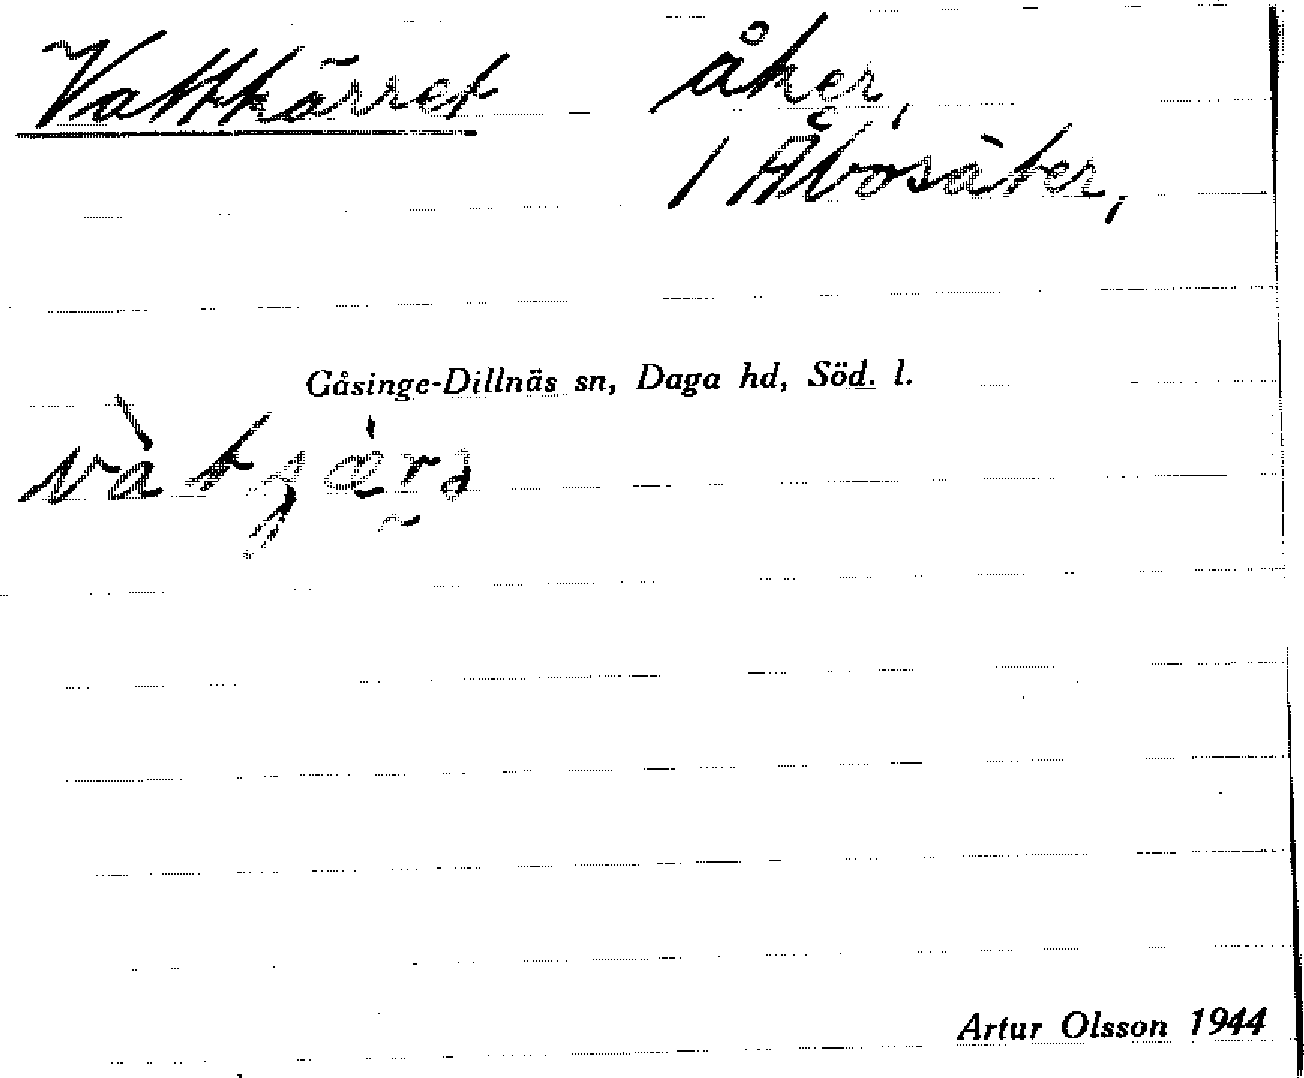 Vattkärret – åker,
1 Åbosäter,
Gåsinge-Dillnäs sn, Daga hd, Söd. l.
Artur Olsson 1944